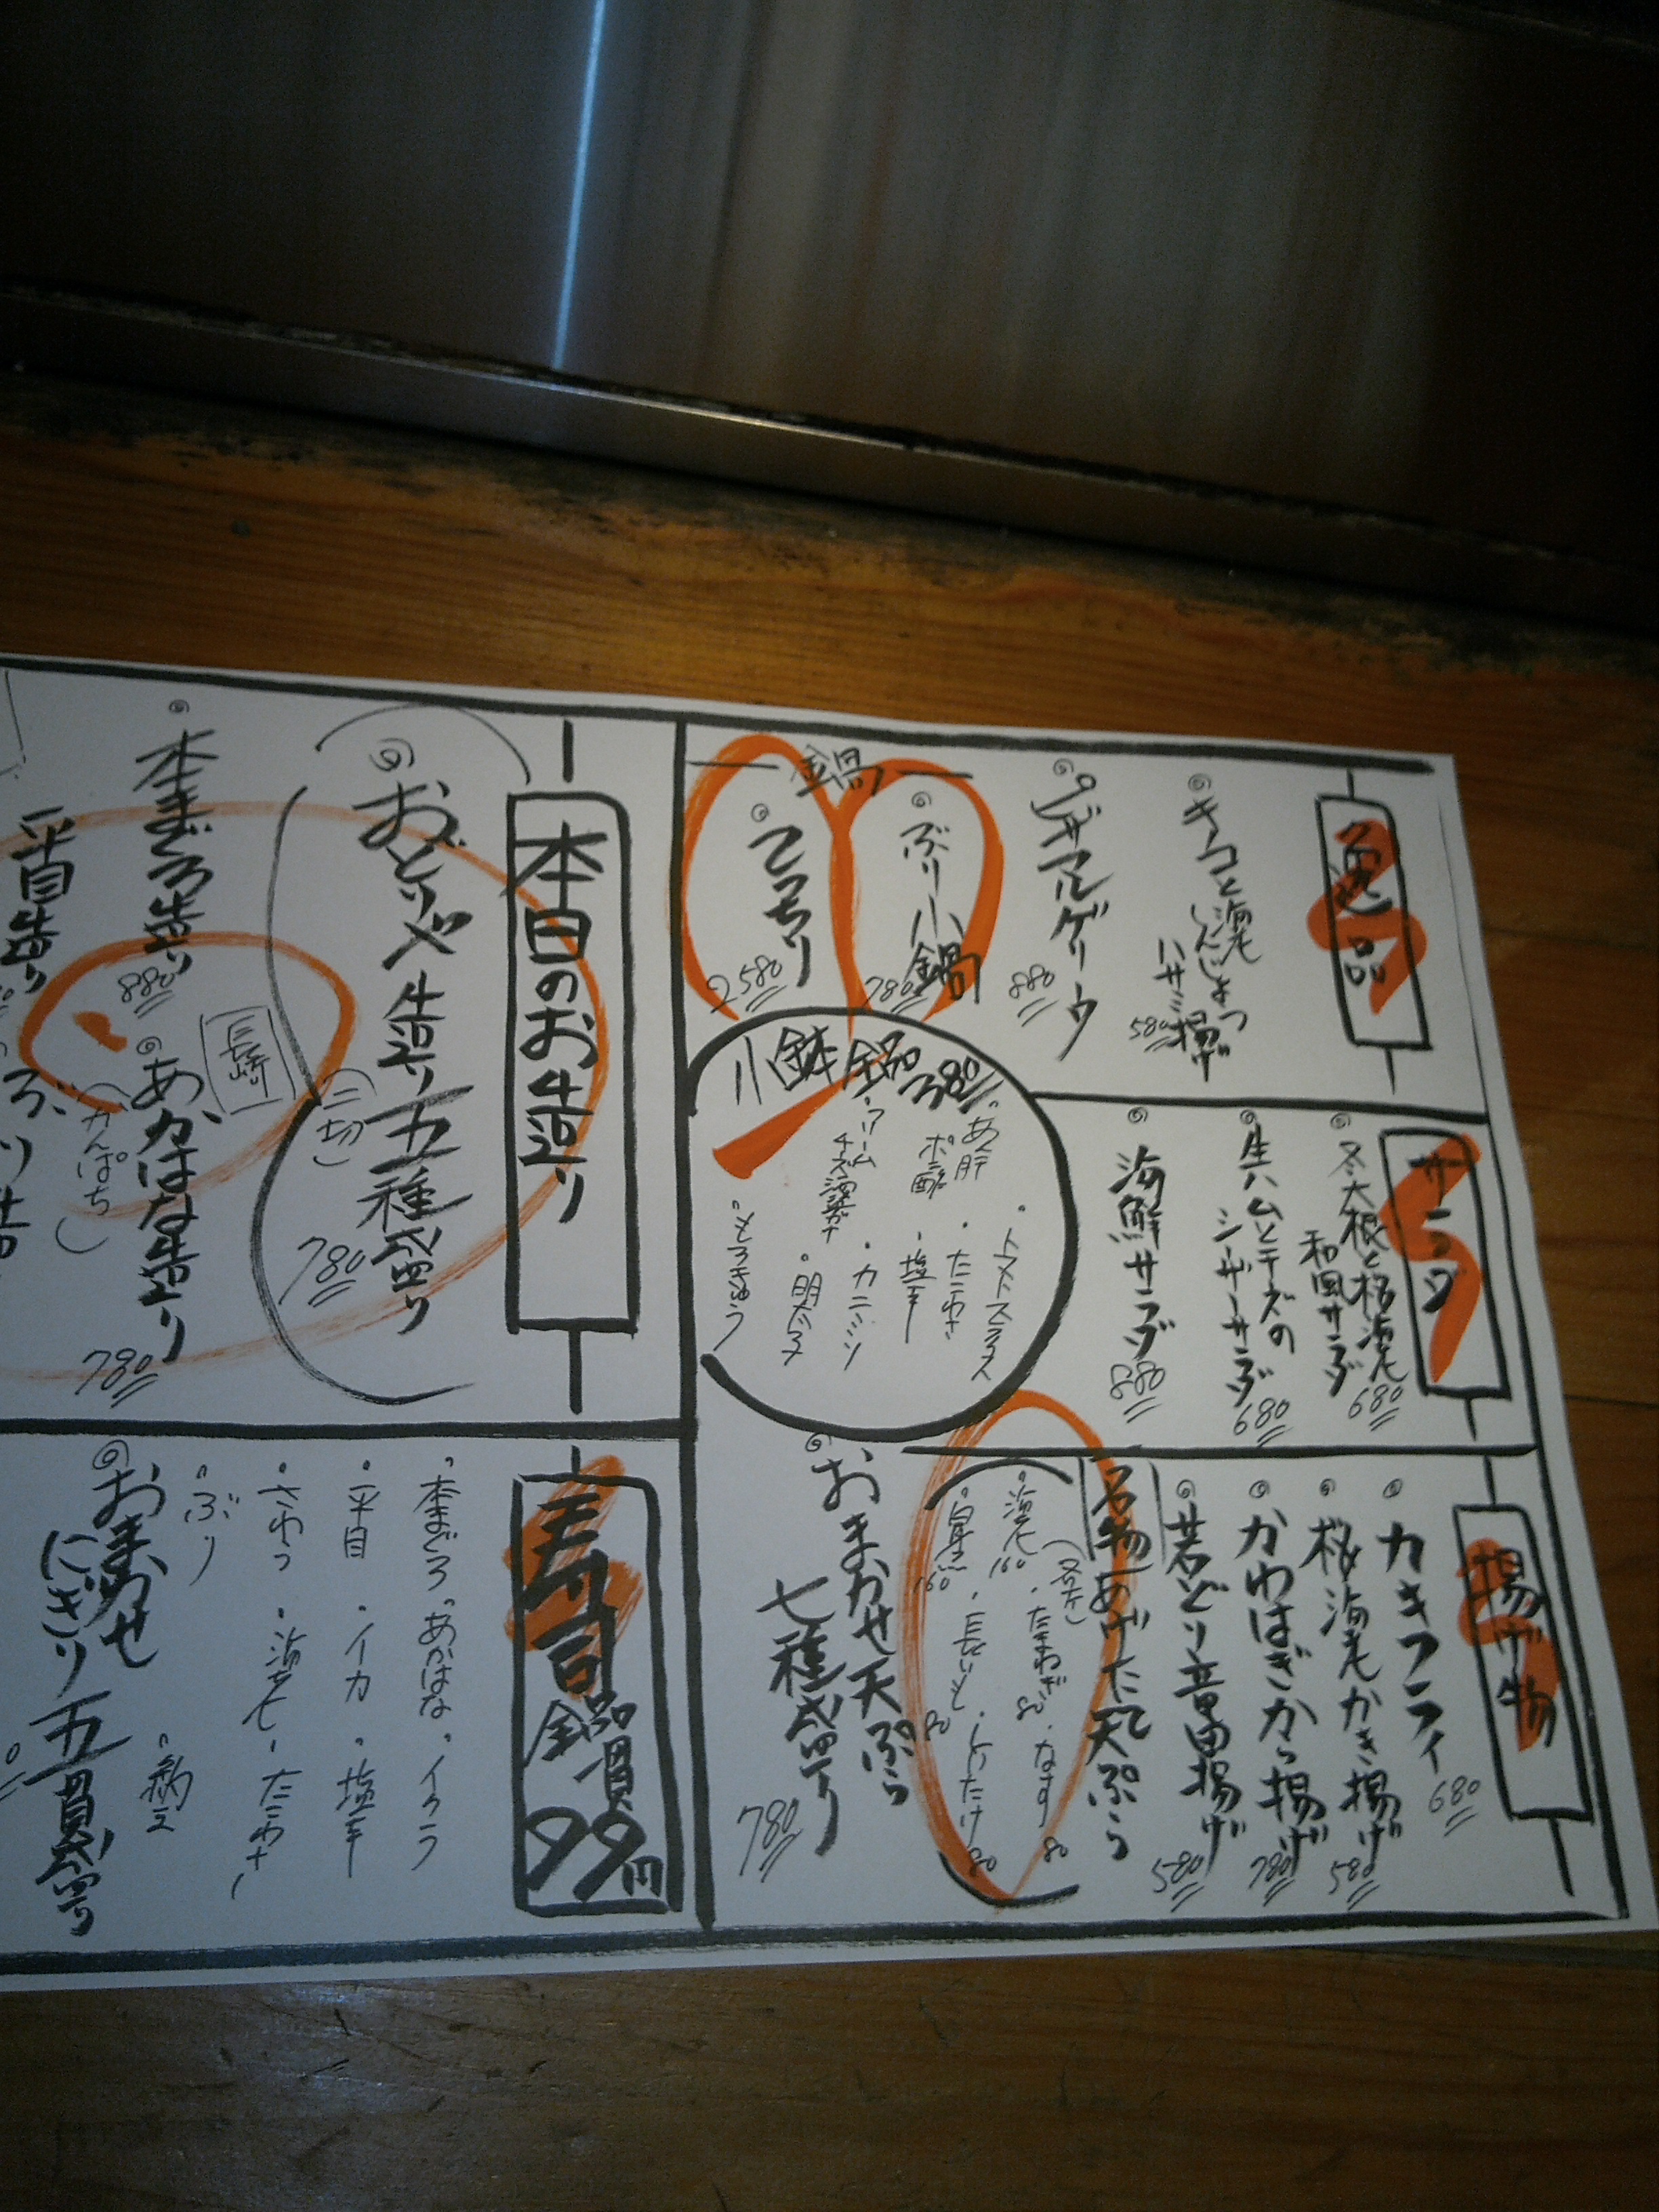 一品
海老しんじょう
ハサミ揚げ
580
880
鍋
ぶり小鍋
780
てっちり
2580
サラダ
冬大根と桜海老
和風サラダ
680
生ハムとチーズの
シーザーサラダ
680
海鮮サラダ
880
揚げ物
カキフライ
680
桜海老かき揚げ
580
かわはぎから揚げ
780
若どり竜田揚げ
580
名物 あげた天ぷら
・海老 160
・たまねぎ 80
・なす 80
160
・長いも 80
・しいたけ 80
おまかせ天ぷら
七種盛り
780
小鉢 全品 380
・あん肝
ポン酢
・クリーム
チーズ酒盗
・トマトスライス
・たこわさ
・塩辛
・カニミソ
・明太子
本日のお造り
おどりや造り五種盛り
(二切)
780
本まぐろ造り
880
長崎
あかはな造り
(かんぱち)
780
平目造り
ぶり造
寿司 全品一貫 99円
・本まぐろ ・あかはな ・イクラ
・平目 ・イカ ・塩辛
・海老 ・たこわさ
・ぶり
・納豆
おまかせ
にぎり五貫盛り